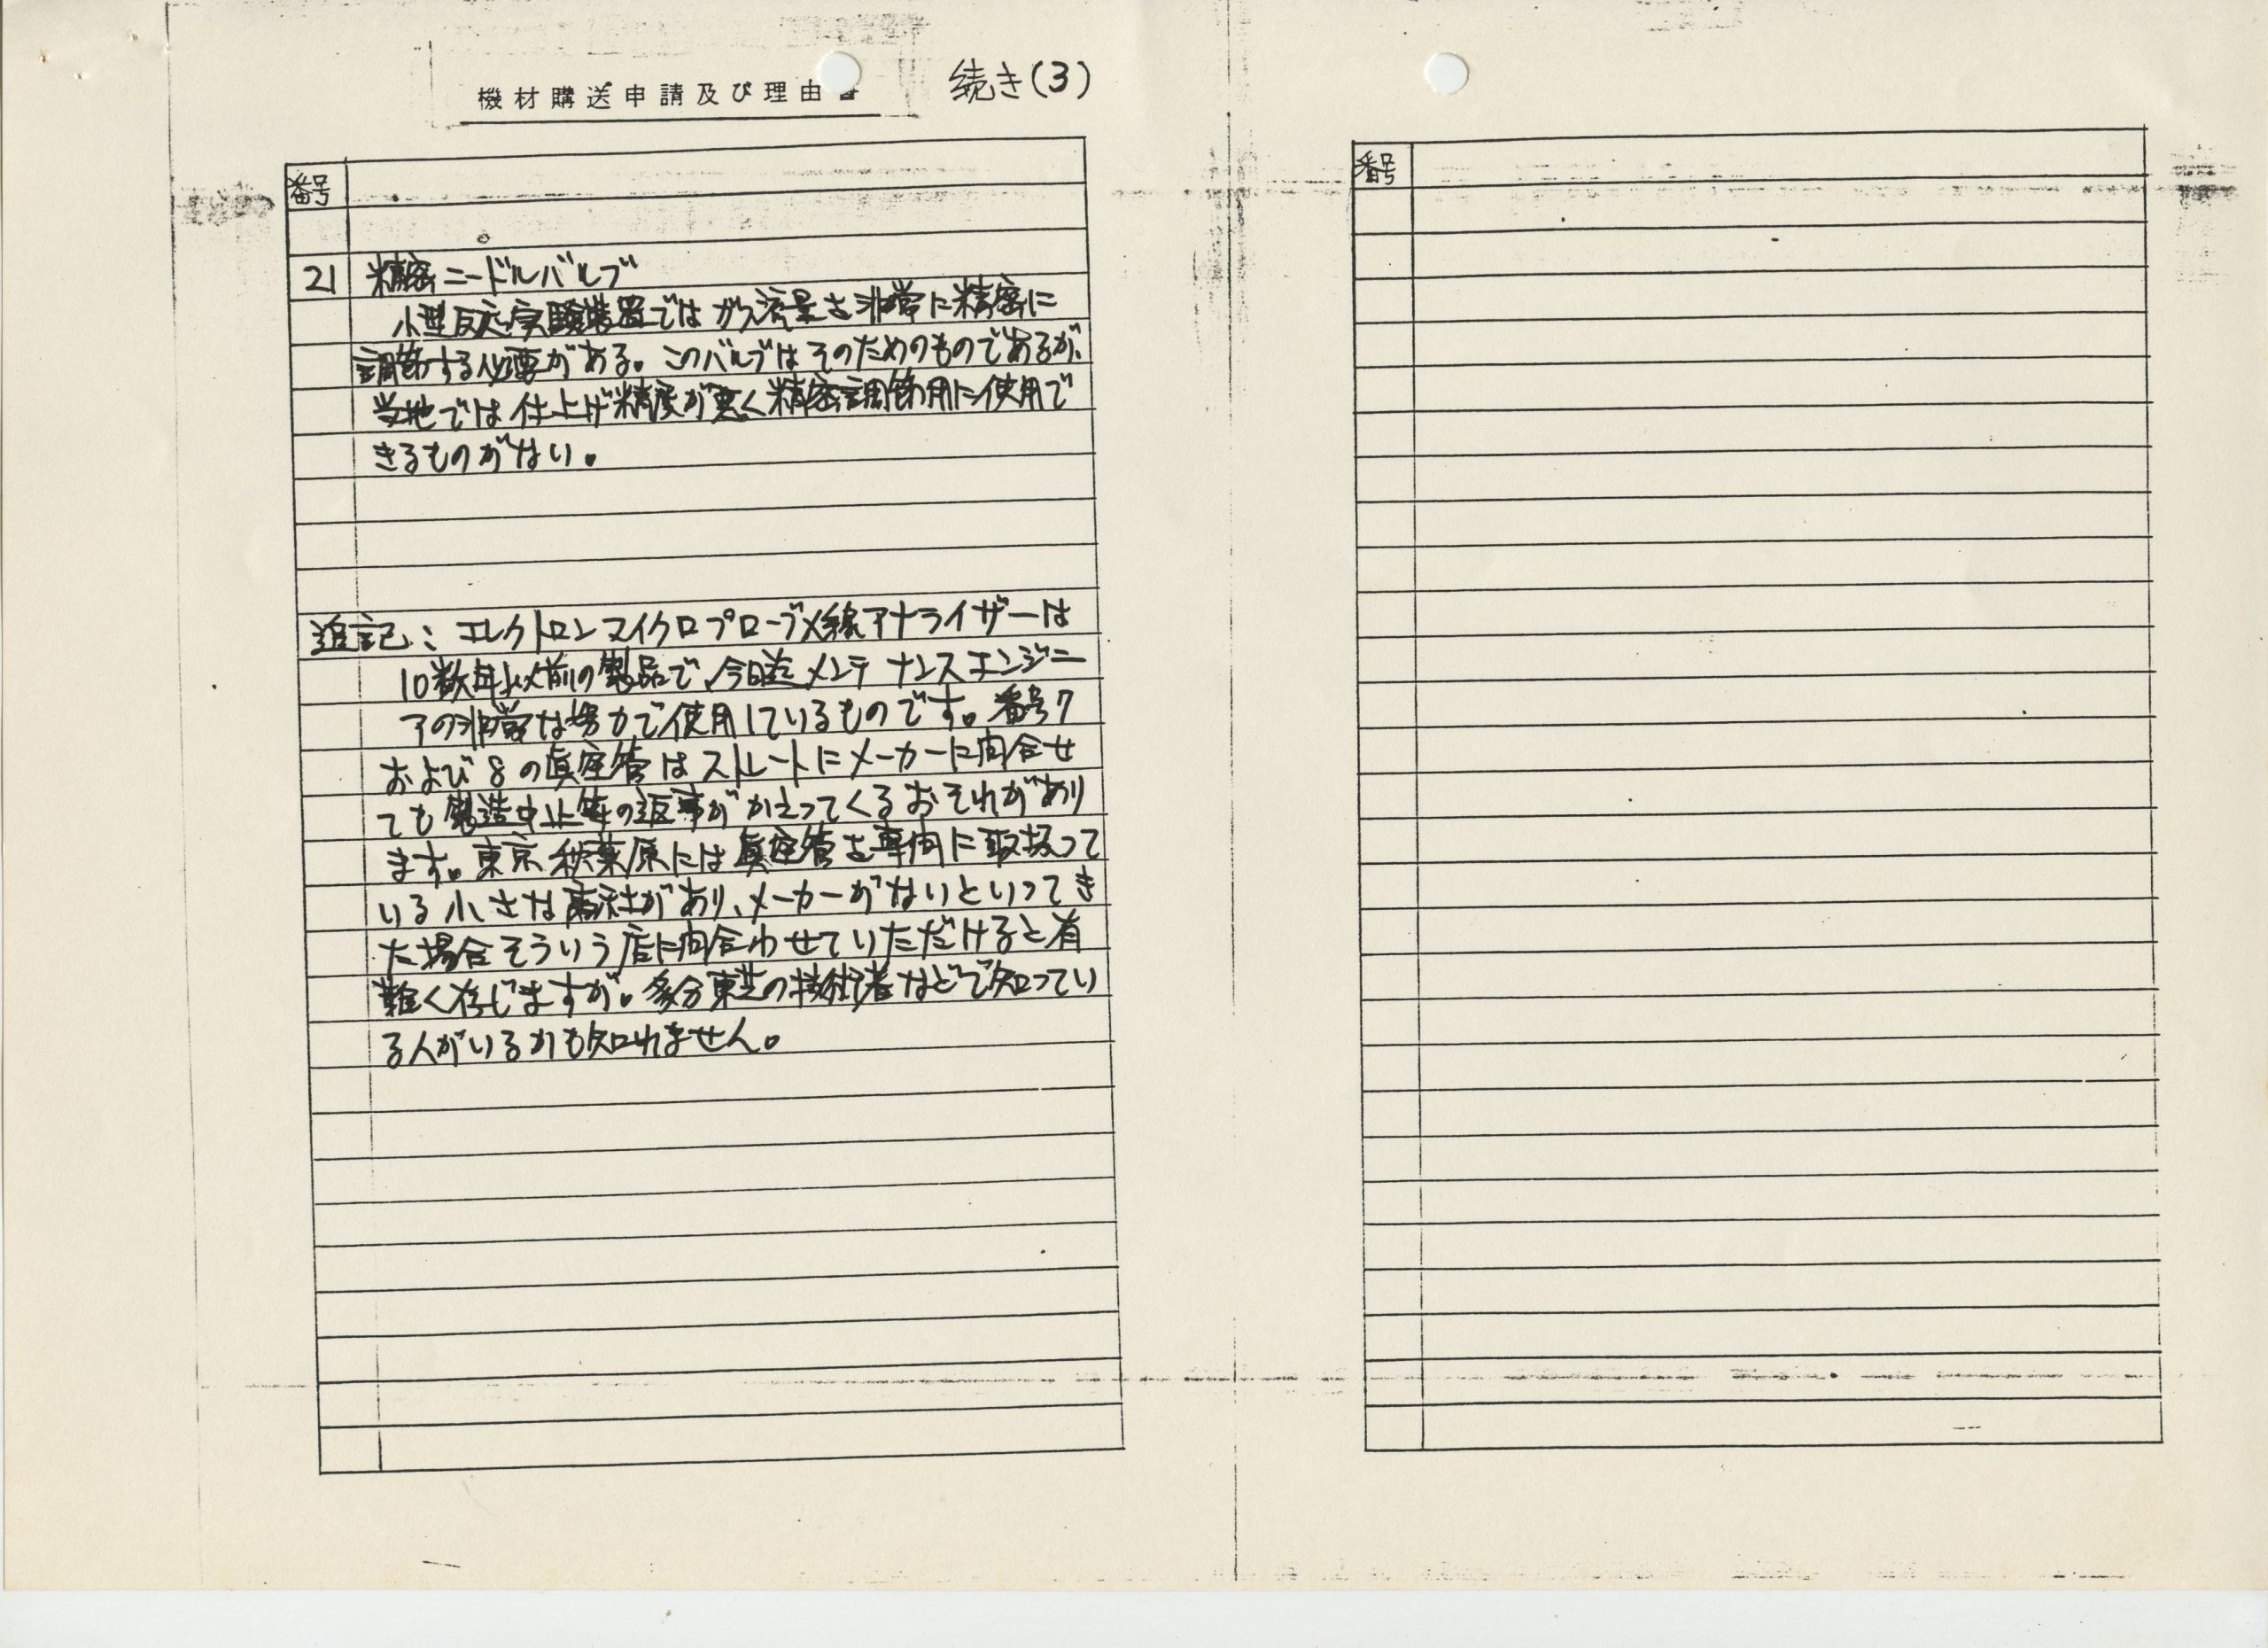 機材購送申請及び理由書 続き(3)
番号
21 精密ニードルバルブ
小型反応実験装置ではガス流量を非常に精密に
調節する必要がある。このバルブはそのためのものであるが、
当地では仕上げ精度が悪く精密調節用に使用で
きるものがない。
追記：エレクトロンマイクロプローブX線アナライザーは
10数年以前の製品で、今日迄メンテナンスエンジニ
アの非常な努力で使用しているものです。番号7
および8の真空管はストレートにメーカーに問合せ
ても製造中止等の返事がかえってくるおそれがあり
ます。東京秋葉原には真空管を専門に取扱って
いる小さな商社があり、メーカーがないといってき
た場合そういう店に問合わせていただけると有
難く存じますが。多分東芝の技術者などで知ってい
る人がいるかも知れません。
番号